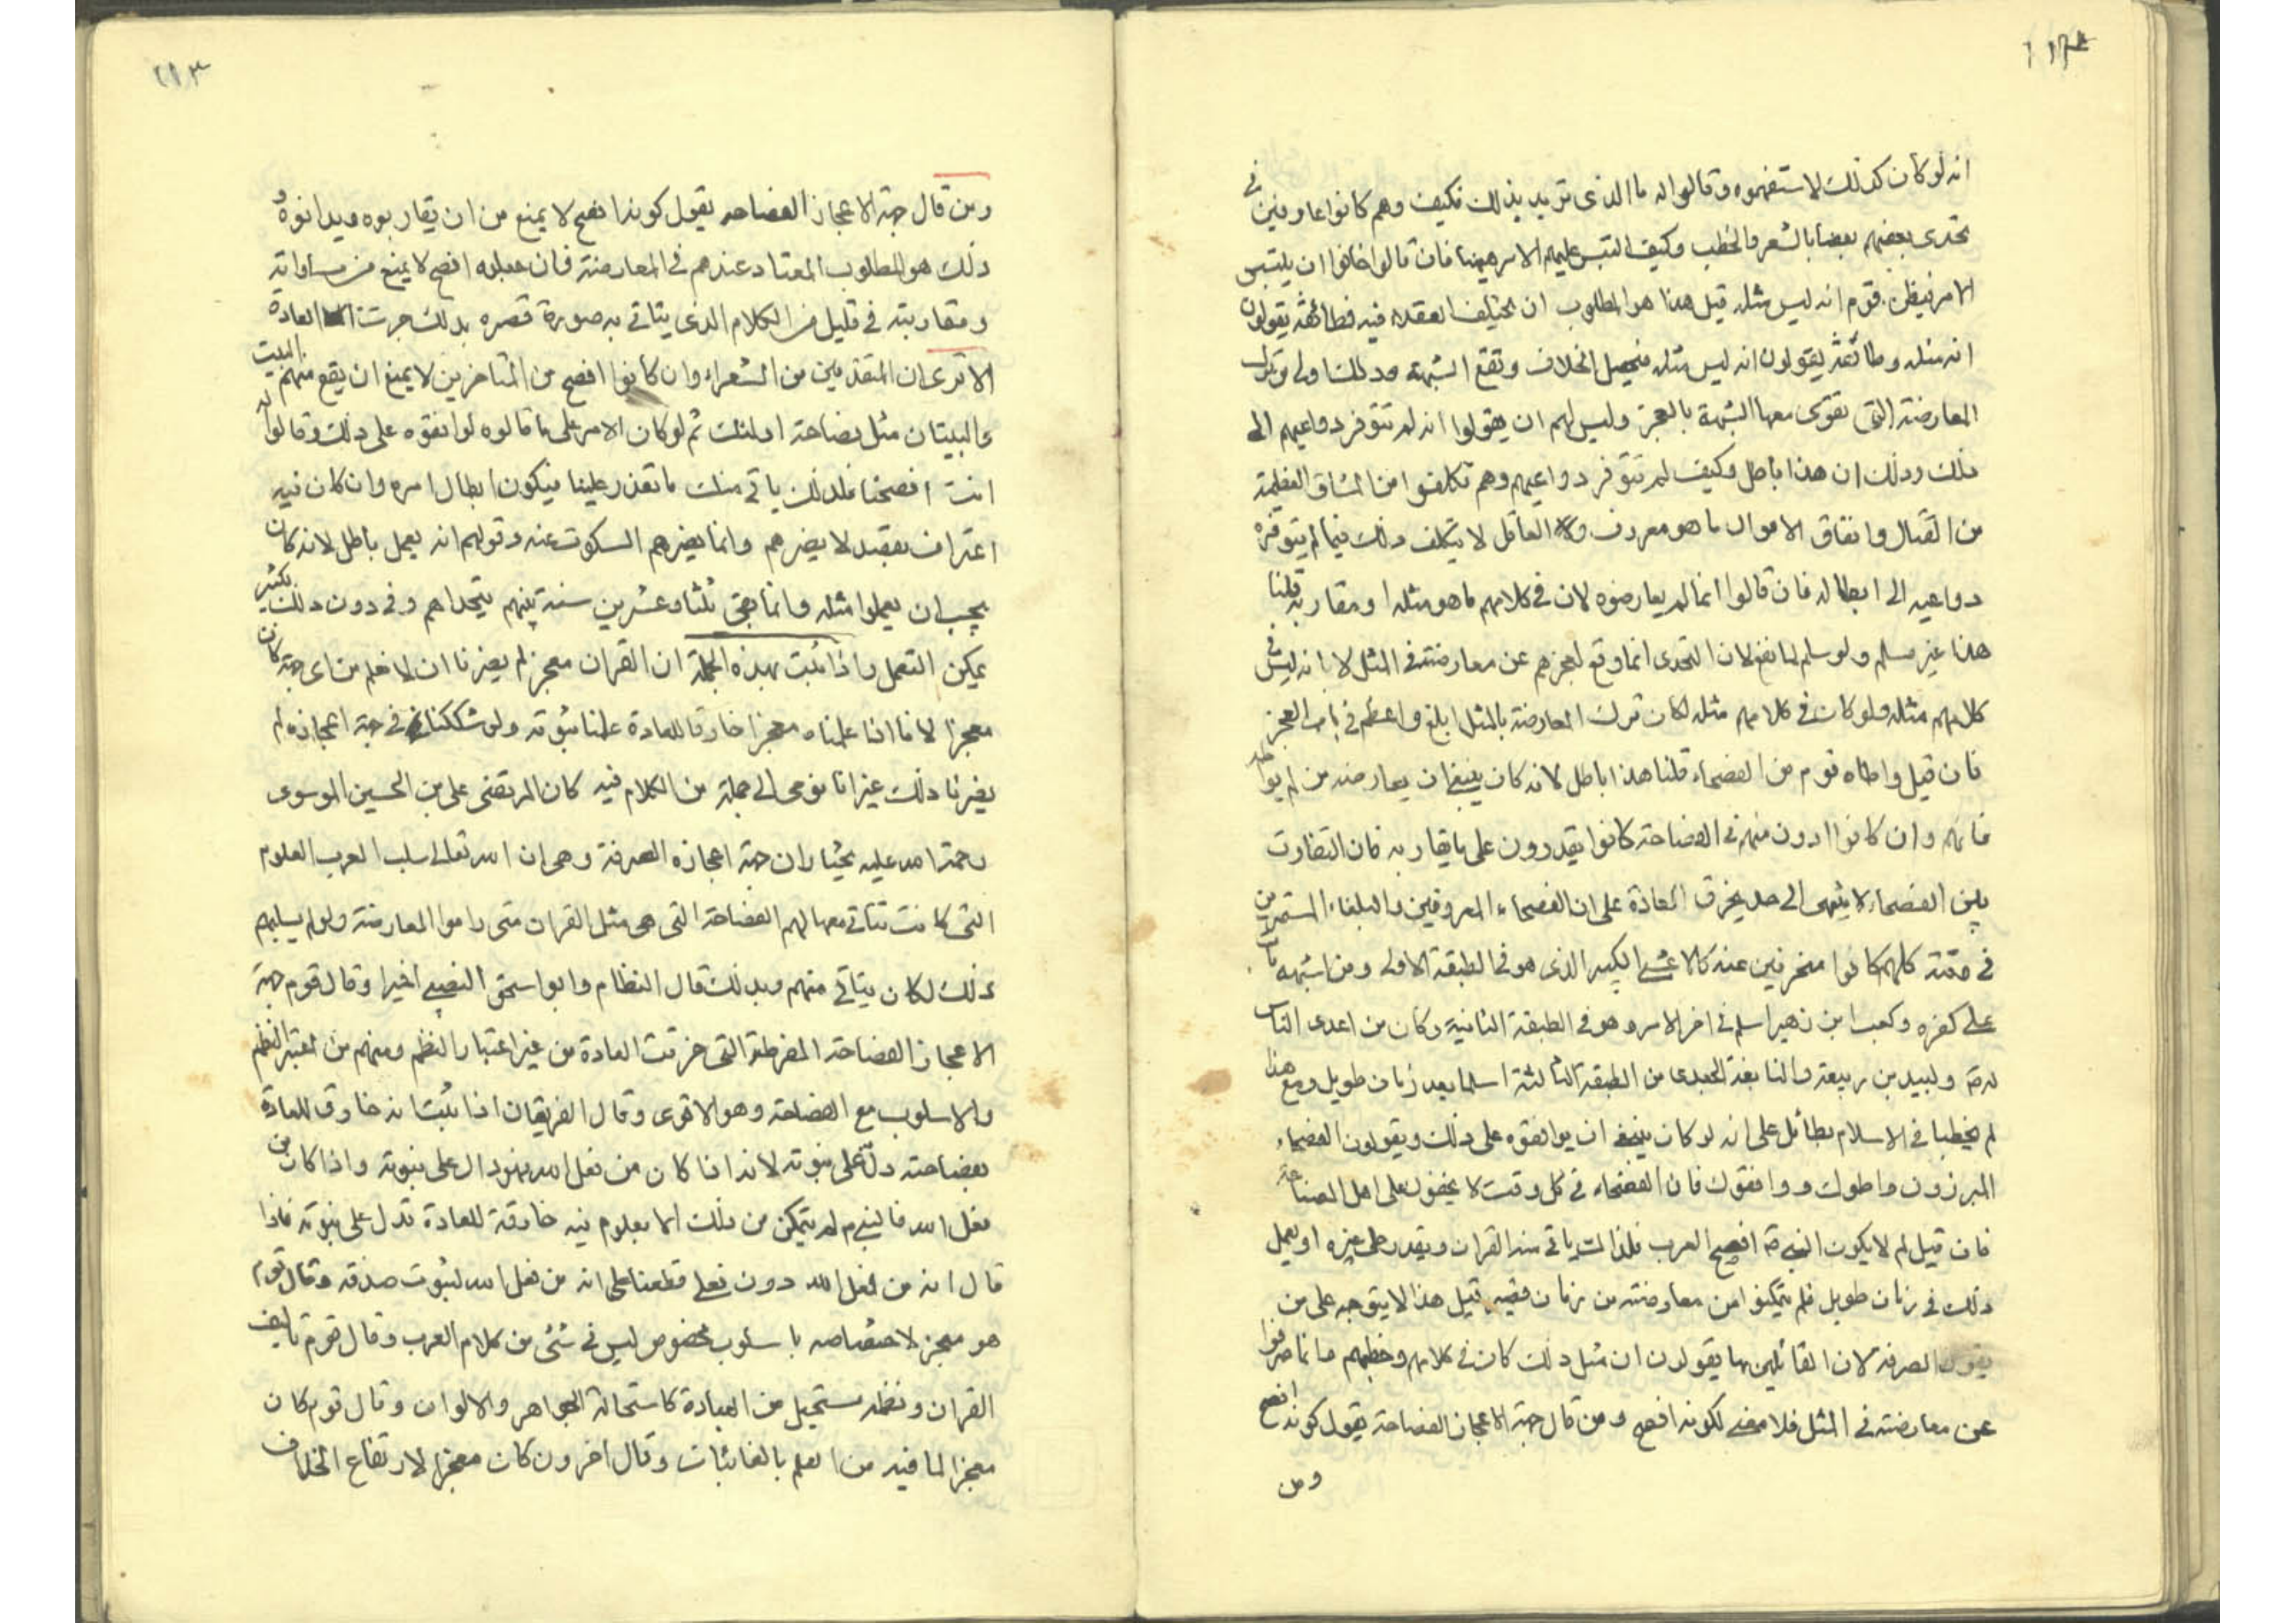 انه لو كان كذلك لاستفهموه وقالوا له ما الذى تريد بذلك فكيف وهم كانوا عارفين فى
تحدى بعضهم بعضا بالشعر والخطب وكيف التبس عليهم الامر هيهنا فان قالوا خافوا ان يلتبس
الامر فيظن قوم انه ليس مثله قيل هذا هو المطلوب ان يختلف العقلاء فيه فطائفة يقولون
انه مثله وطائفة يقولون انه ليس مثله فيحصل الخلاف وتقع الشبهة وذلك اولى من ترك
المعارضة التى يقوى معها الشبهة بالعجز وليس لهم ان يقولوا انه لم تتوفر دواعيهم الى
ذلك وذلك ان هذا باطل وكيف لم تتوفر دواعيهم وهم تكلفوا من المشاق العظيمة
من القتال وانفاق الاموال ما هو معروف والعاقل لا يتكلف ذلك فيما لم يتوفر
دواعيه الى ابطاله فان قالوا انما لم يعارضوه لان فى كلامهم ما هو مثله او مقاربه قلنا
هذا غير مسلم ولو سلم لما نفع لان التحدى انما وقع لعجزهم عن معارضته فى المثل لا انه ليس فى
كلامهم مثله ولو كان فى كلامهم مثله لكان ترك المعارضة بالمثل ابلغ واعظم فى باب العجز
فان قيل واطاه قوم من الفصحاء قلنا هذا باطل لانه كان ينبغى ان يعارضه من لم يواطه
فانهم وان كانوا ادون منهم فى الفصاحة كانوا يقدرون على ما يقاربه فان التفاوت
بين الفصحاء لا ينتهى الى حد يخرق العادة على ان الفصحاء المعروفين والبلغاء المشتهرين
فى وقته كلهم كانوا منحرفين عنه كالاعشى الكبير الذى هو فى الطبقة الاولى ومن اشبهه مات
على كفره وكعب ابن زهير اسلم فى اخر الامر وهو فى الطبقة الثانية وكان من اعدى الناس
له ص ولبيد بن ربيعة والنابغة الجعدى من الطبقة الثالثة اسلما بعد زمان طويل ومع هذا
لم يحظيا فى الاسلام بطائل على انه لو كان ينبغى ان يوافقوه على ذلك ويقولون الفصحاء
المبرزون واطوك ووافقوك فان الفصحاء فى كل وقت لا يخفون على اهل الصناعة
فان قيل لم لا يكون النبى ص افصح العرب فلذلك ياتى منه القران ويتعذر على غيره او يعمل
ذلك فى زمان طويل فلم يتمكنوا من معارضته من زمان قصير قيل هذا لا يتوجه على من
يقول الصرفة لان القائلين بها يقولون ان مثل ذلك كان فى كلامهم وخطبهم وانما صرفوا
عن معارضته فى المثل فلا معنى لكونه افصح ومن قال جهة الاعجاز الفصاحة يقول كونه افصح
ومن
ومن قال جهة الاعجاز الفصاحه يقول كونه افصح لا يمنع من ان يقاربوه ويدانوه و
ذلك هو المطلوب المعتاد عندهم فى المعارضة فان عمله افصح لا يمنع من مساواته
ومقاربته فى قليل من الكلام الذى يتاتى به صورة قصيره بذلك جرت العادة
الا ترى ان المتقدمين من الشعراء وان كانوا افصح من المتاخرين لا يمنع ان يقع منهم البيت
والبيتان مثل فصاحة اولئك ثم لو كان الامر على ما قالوه لوافقوه على ذلك وقالوا له
انت افصحنا فلذلك ياتى منك ما تعذر علينا فيكون ابطال امره وان كان فيه
اعتراف بفضله لا يضرهم وانما يضرهم السكوت عنه وقولهم انه يعمل باطل لانه كان
يجب ان يعملوا مثله وانما بقى ثلثا وعشرين سنة بينهم يتحداهم وفى دون ذلك بكثير
يمكن التعمل واذا ثبت بهذه الجملة ان القران معجز لم يضرنا ان لا نعلم من اى جهة كان
معجزا لانا اذا علمناه معجزا خارقا للعادة علمنا نبوته ولو شككنا فى جهة اعجازه لم
يضرنا ذلك غير انا نومى الى جملة من الكلام فيه كان المرتضى على بن الحسين الموسوى
رحمة الله عليه يختار ان جهة اعجازه الصرفة وهى ان الله تعالى سلب العرب العلوم
التى كانت تتاتى معها لهم الفصاحة التى هى مثل القران متى راموا المعارضة ولو لم يسلبهم
ذلك لكان يتاتى منهم وبذلك قال النظام وابو اسحق النصيبى اخيرا وقال قوم جهة
الاعجاز الفصاحة المفرطة التى خرقت العادة من غير اعتبار النظم ومنهم من اعتبر النظم
والاسلوب مع الفصاحة وهو الاقوى وقال الفريقان اذا ثبت انه خارق للعادة
بفصاحته دل على نبوته لانه اذا كان من فعل الله فهو دال على نبوته واذا كان من
فعل الله فالنبى م لم يتمكن من ذلك الا بعلوم فيه خارقة للعادة تدل على نبوته فاذا
قال انه من فعل الله دون فعلى قطعنا على انه من فعل الله لثبوت صدقه وقال قوم
هو معجز لاختصاصه باسلوب مخصوص ليس فى شئ من كلام العرب وقال قوم تاليف
القران ونظمه مستحيل من العبادة كاستحالة الجواهر والالوان وقال قوم كان
معجزا لما فيه من العلم بالغائبات وقال اخرون كان معجزا لارتفاع الخلاف